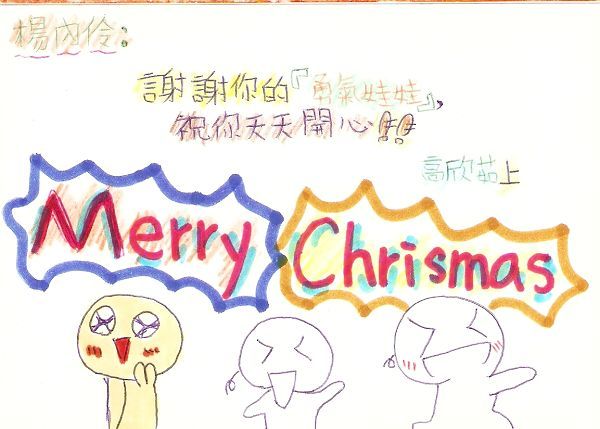 楊內伶：
謝謝你的『勇氣娃娃』，
祝你天天開心!!
高欣茹上
Merry Chrismas